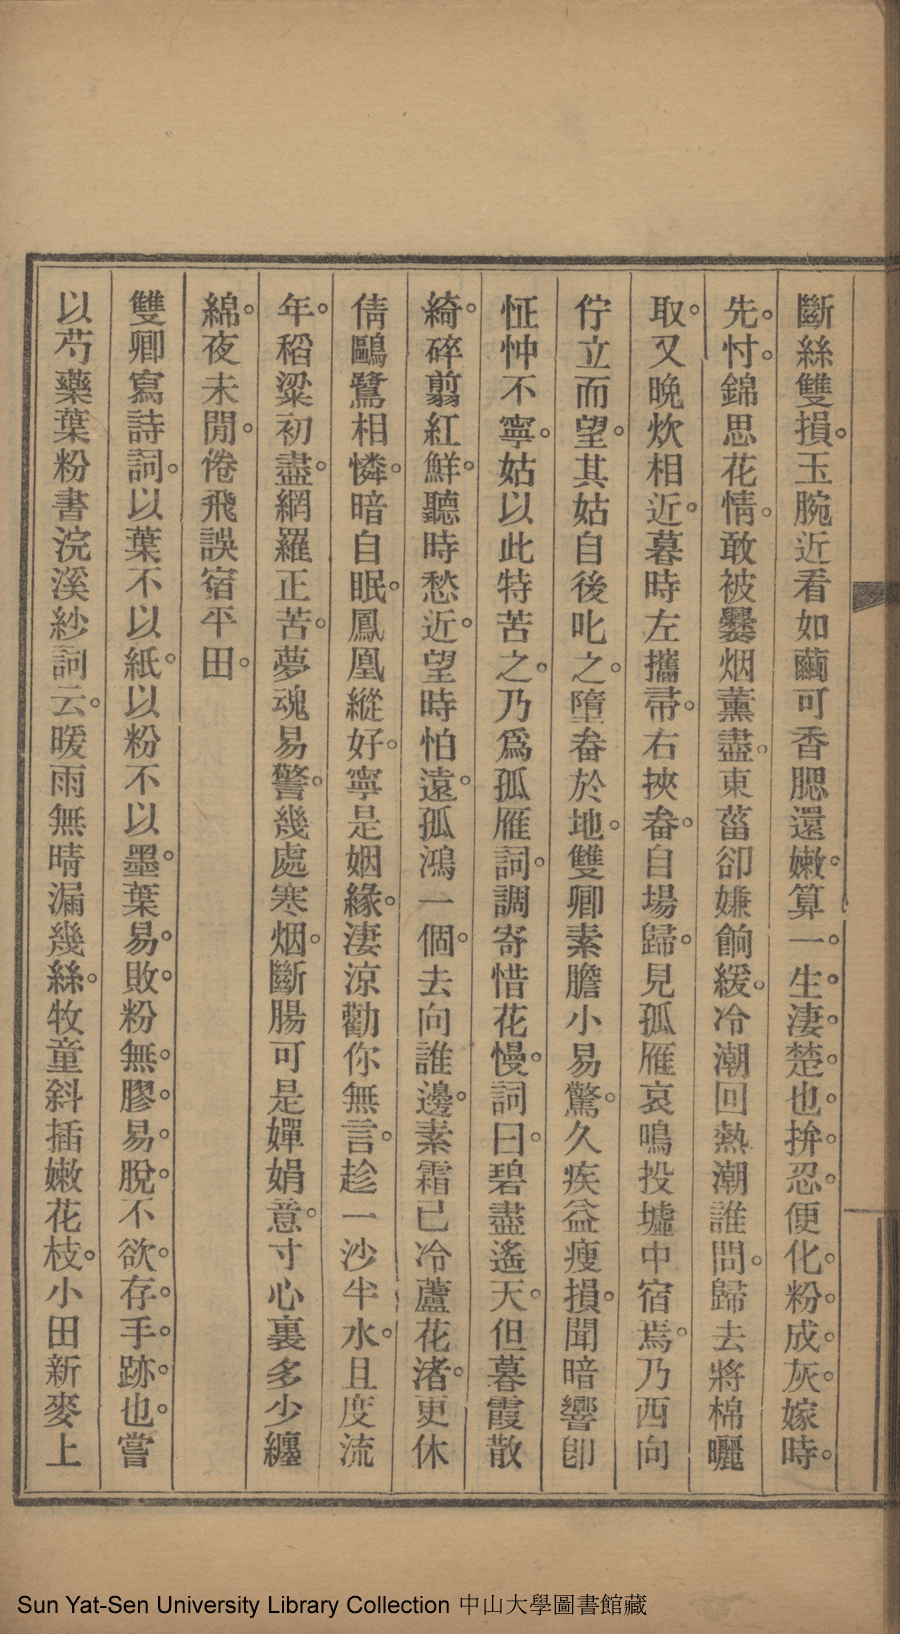 斷絲雙損。玉腕近看如繭可香腮還嫩。算一。生。淒。楚。也。拚。忍。便化。粉。成。灰。嫁。時。
先。忖。錦思花情。敢被爨烟薰盡。東菑卻嫌餉緩。冷潮回熱潮誰問。歸去將棉曬
取。又晚炊相近。暮時左攜帚。右挾畚。自場歸。見孤雁哀鳴投墟中宿焉。乃西向
佇立而望。其姑自後叱之。墮畚於地。雙卿素膽小易驚。久疾益瘦損。聞暗響卽
怔忡不寧。姑以此特苦之。乃爲孤雁詞。調寄惜花慢。詞曰。碧盡遙天。但暮霞散
綺。碎翦紅鮮。聽時愁近。望時怕遠。孤鴻一個。去向誰邊。素霜已冷蘆花渚。更休
倩鷗鷺相憐。暗自眠。鳳凰縱好。寧是姻緣。淒涼勸你無言。趁一沙半水。且度流
年。稻粱初盡。網羅正苦。夢魂易警。幾處寒烟。斷腸可是嬋娟意。寸心裏多少纏
綿。夜未閒。倦飛誤宿平田。
雙卿寫詩詞。以葉不以紙。以粉不以墨。葉易。敗。粉無。膠。易。脫。不欲。存。手。跡。也。嘗
以芍藥葉粉書浣溪紗詞云。暖雨無晴漏幾絲。牧童斜插嫩花枝。小田新麥上
Sun Yat-Sen University Library Collection 中山大學圖書館藏